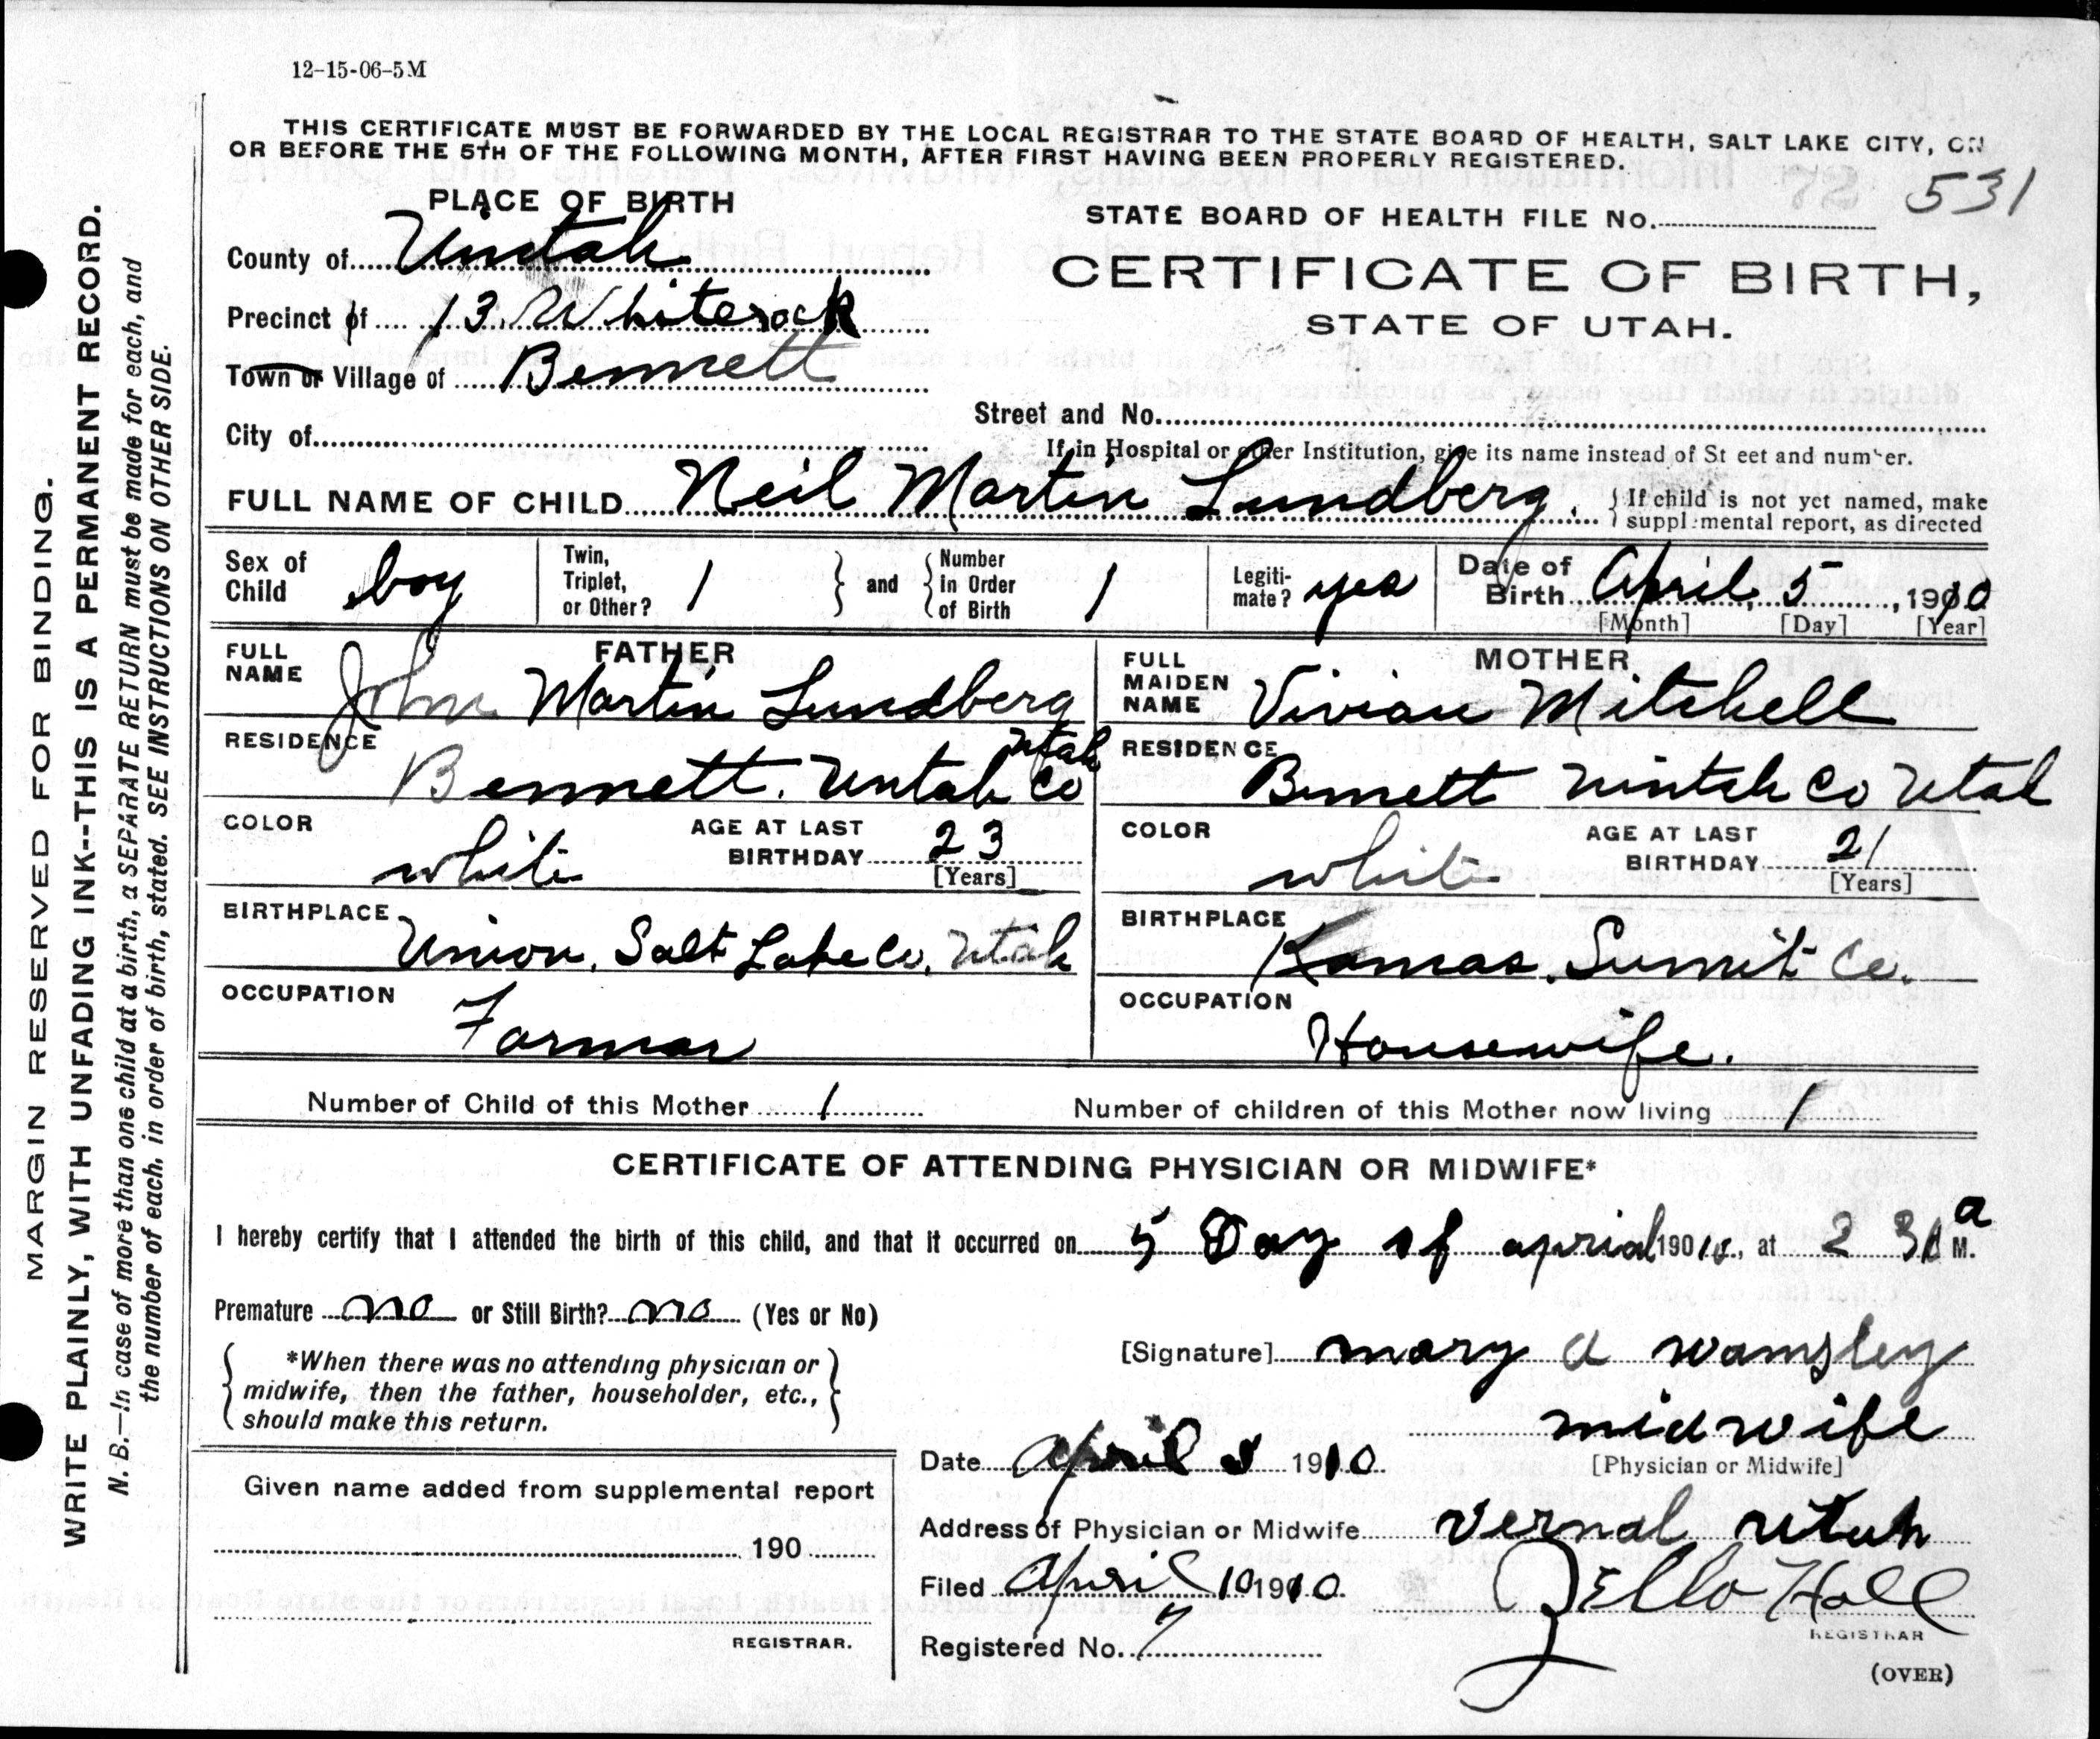 12-15-06-5M
THIS CERTIFICATE MUST BE FORWARDED BY THE LOCAL REGISTRAR TO THE STATE BOARD OF HEALTH, SALT LAKE CITY, ON
OR BEFORE THE 5TH OF THE FOLLOWING MONTH, AFTER FIRST HAVING BEEN PROPERLY REGISTERED.
PLACE OF BIRTH
STATE BOARD OF HEALTH FILE No. 531
County of Uintah
CERTIFICATE OF BIRTH,
STATE OF UTAH.
Precinct of 13. Whiterock
Town or Village of Bennett
City of
Street and No.
If in Hospital or other Institution, give its name instead of St eet and number.
FULL NAME OF CHILD Neil Martin Lundberg.
If child is not yet named, make
suppl mental report, as directed
Sex of Child boy
Twin, Triplet, or Other? 1
and Number in Order of Birth 1
Legiti-mate? yes
Date of Birth April, 5, 1910
[Month] [Day] [Year]
FATHER
FULL NAME John Martin Lundberg
RESIDENCE Bennett. Untah Co Utah
COLOR white
AGE AT LAST BIRTHDAY 23
[Years]
BIRTHPLACE Union, Salt Lake Co, Utah
OCCUPATION Farmar
MOTHER
FULL MAIDEN NAME Vivian Mitchell
RESIDENCE Bennett Uintah Co Utah
COLOR white
AGE AT LAST BIRTHDAY 21
[Years]
BIRTHPLACE Kamas. Sumit Co.
OCCUPATION Housewife.
Number of Child of this Mother 1
Number of children of this Mother now living 1
CERTIFICATE OF ATTENDING PHYSICIAN OR MIDWIFE*
I hereby certify that I attended the birth of this child, and that it occurred on 5 Day of aprial 1910, at 2 30 a M.
Premature no or Still Birth? no (Yes or No)
*When there was no attending physician or
midwife, then the father, householder, etc.,
should make this return.
[Signature] mary a wamsley
midwife
[Physician or Midwife]
Date April 1910
Given name added from supplemental report
190
REGISTRAR.
Address of Physician or Midwife vernal utah
Filed April 10 1910
Zello Hall
REGISTRAR
Registered No. 7
(OVER)
MARGIN RESERVED FOR BINDING.
WRITE PLAINLY, WITH UNFADING INK--THIS IS A PERMANENT RECORD.
N. B.—In case of more than one child at a birth, a SEPARATE RETURN must be made for each, and
the number of each, in order of birth, stated. SEE INSTRUCTIONS ON OTHER SIDE.